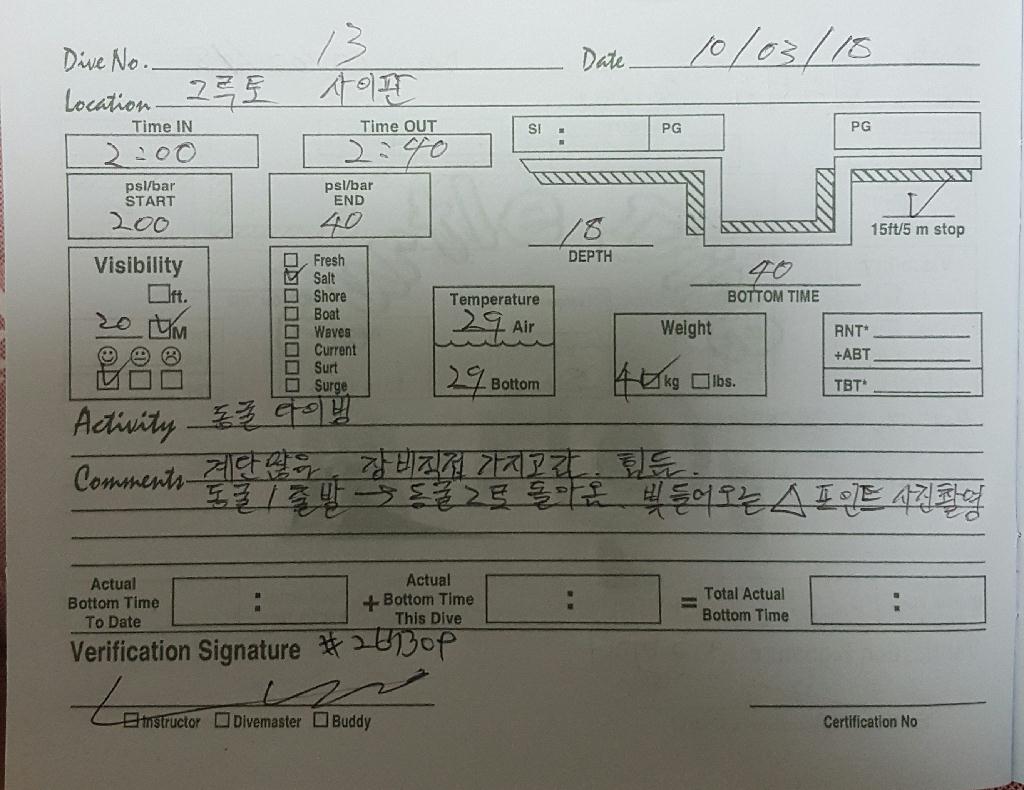 Dive No. 13 Date 10/03/18
Location 그루토 사이판
Time IN Time OUT SI : PG PG
2:00 2:40
psl/bar START 200
psl/bar END 40
15ft/5 m stop
18 DEPTH
40 BOTTOM TIME
Visibility
ft.
20 M
Fresh
Salt
Shore
Boat
Waves
Current
Surt
Surge
Temperature
29 Air
29 Bottom
Weight
4 kg lbs.
RNT*
+ABT
TBT*
Activity 동굴 다이빙
Comments 계단많음. 장비직접 가지고감. 힘듬.
동굴1 출발 → 동굴2로 돌아옴. 빛들어오는 △ 포인트 사진촬영
Actual Bottom Time To Date : + Actual Bottom Time This Dive : = Total Actual Bottom Time :
Verification Signature
Instructor Divemaster Buddy Certification No